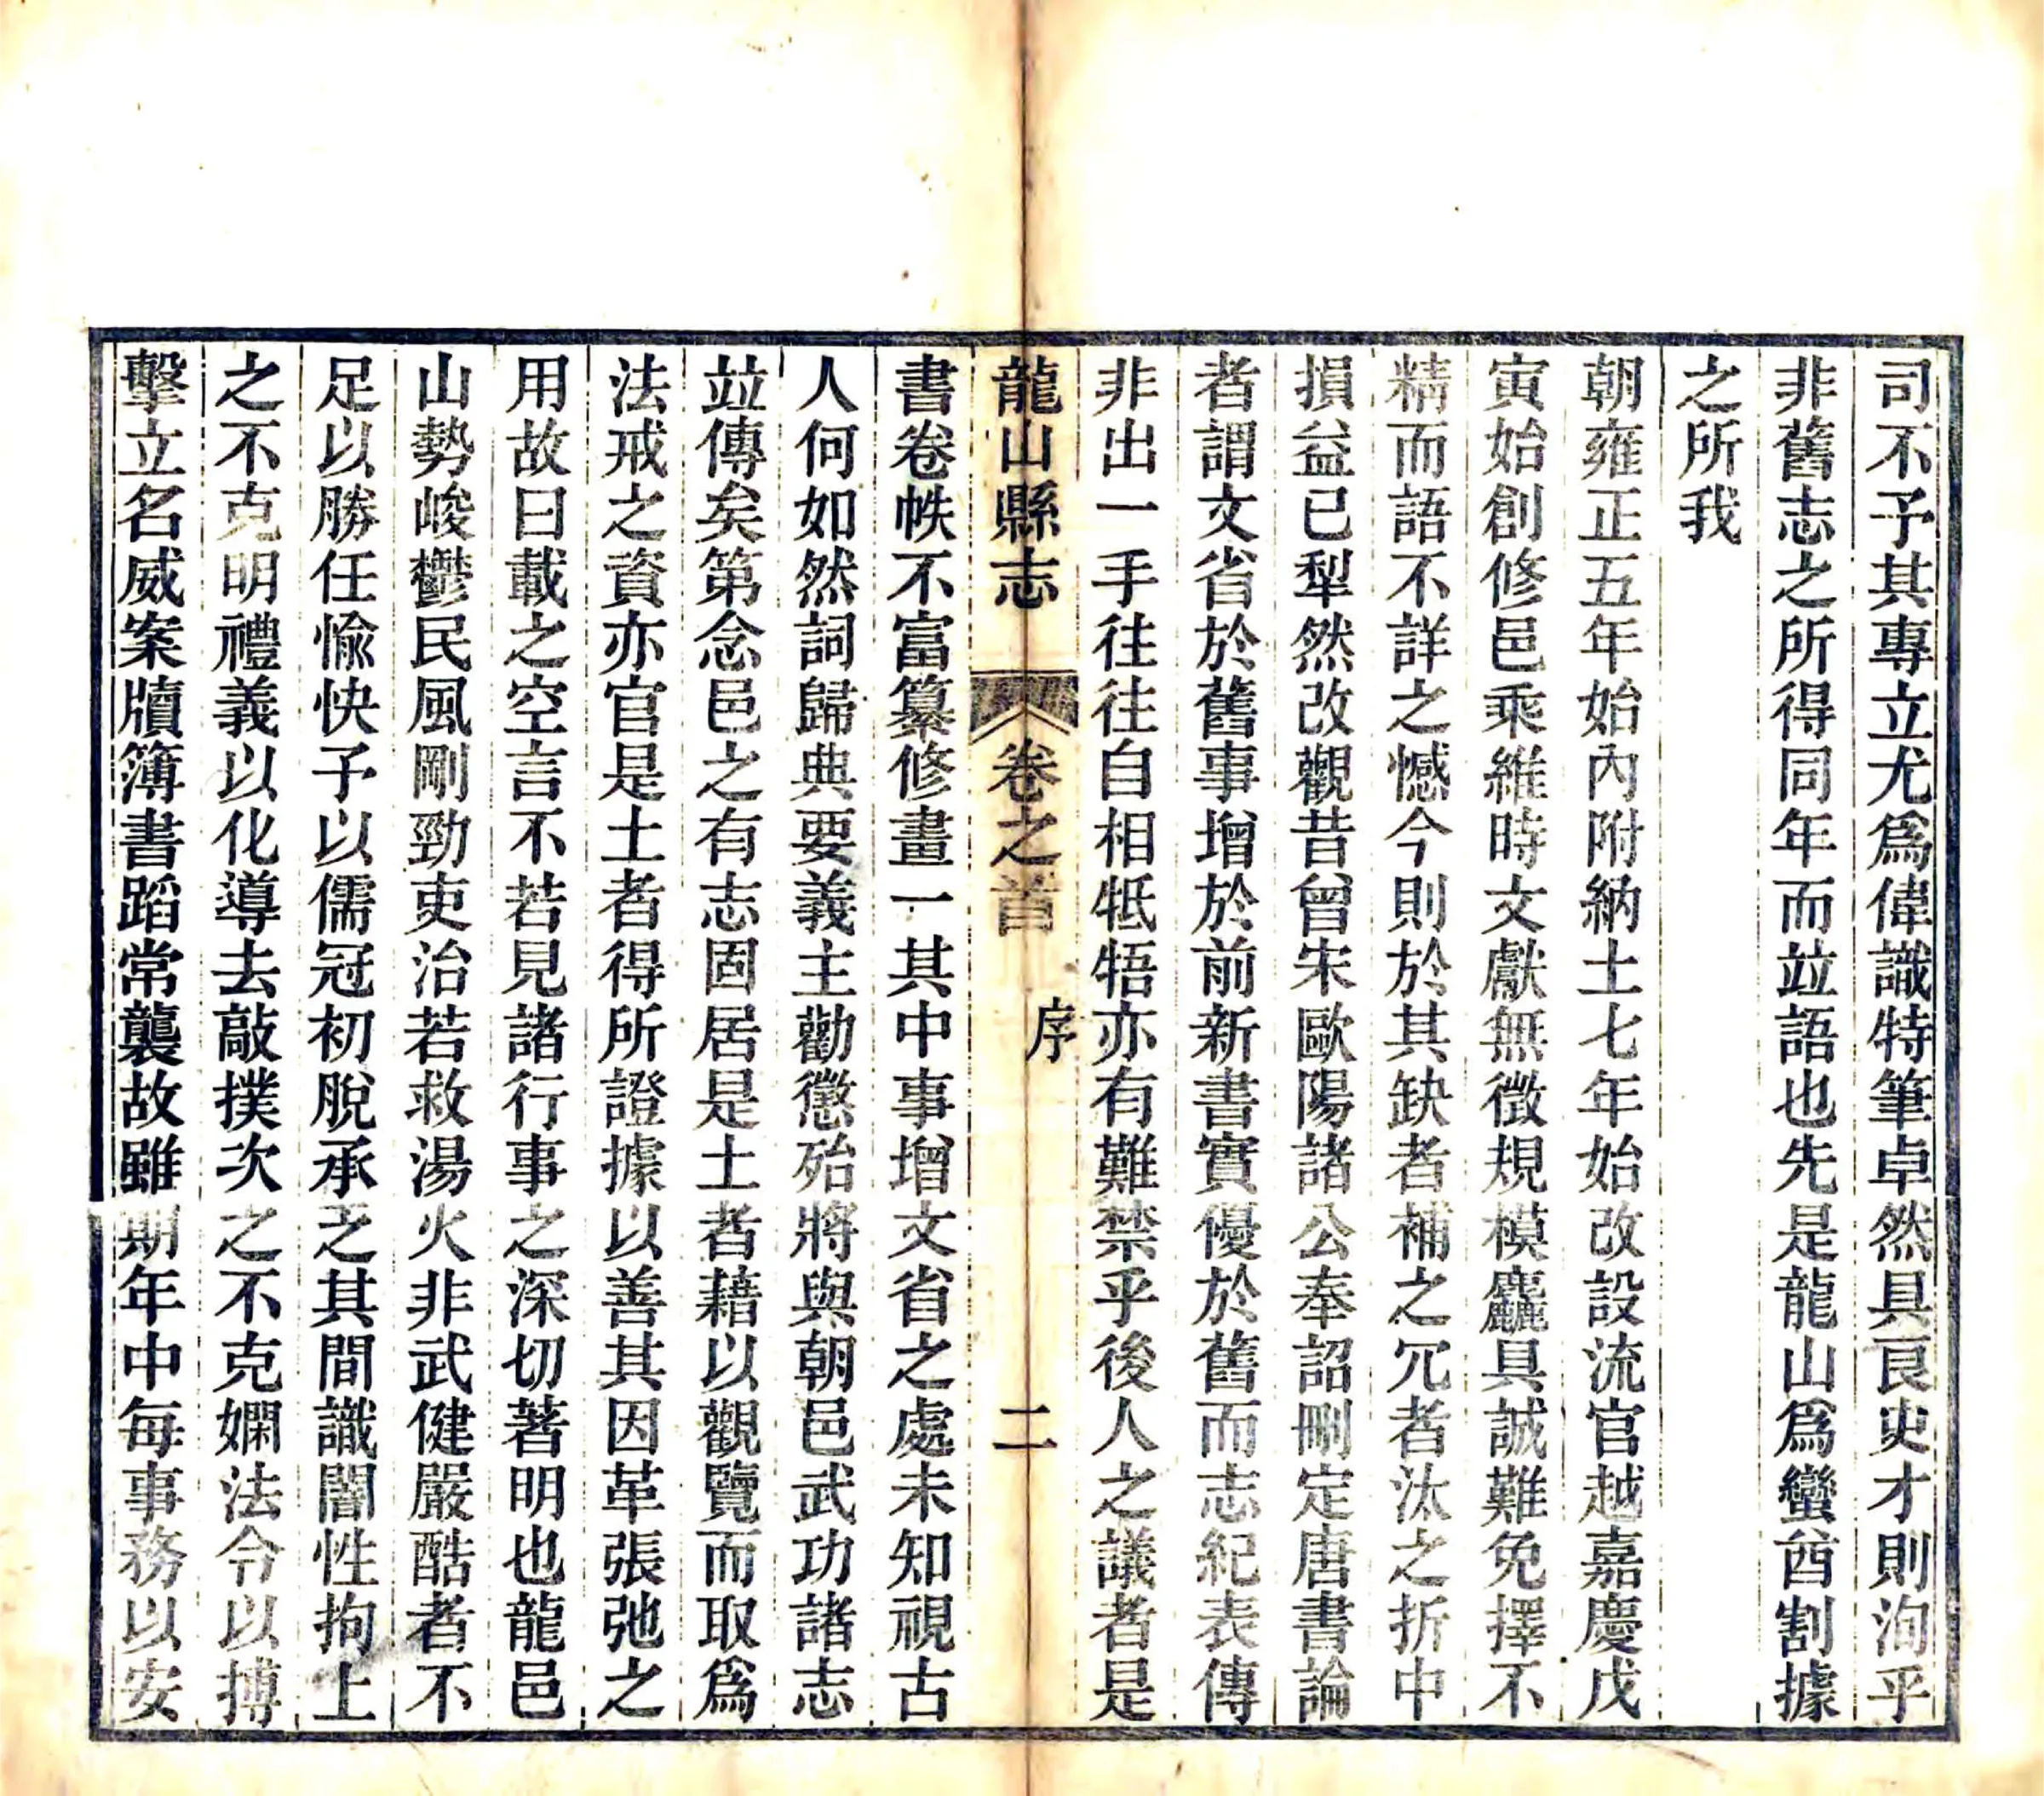 司不予其專立尤爲偉識特筆卓然具良吏才則洵乎
非舊志之所得同年而竝語也先是龍山爲蠻酋割據
之所我
朝雍正五年始內附納土七年始改設流官越嘉慶戊
寅始創修邑乘維時文獻無徵規模麤具誠難免擇不
精而語不詳之憾今則於其缺者補之冗者汰之折中
損益已犁然改觀昔曾宋歐陽諸公奉詔刪定唐書論
者謂文省於舊事增於前新書實優於舊而志紀表傳
非出一手往往自相牴牾亦有難禁乎後人之議者是
龍山縣志 卷之首 序 二
書卷帙不富纂修畫一其中事增文省之處未知視古
人何如然詞歸典要義主勸懲殆將與朝邑武功諸志
竝傳矣第念邑之有志固居是土者藉以觀覽而取爲
法戒之資亦官是土者得所證據以善其因革張弛之
用故曰載之空言不若見諸行事之深切著明也龍邑
山勢峻鬱民風剛勁吏治若救湯火非武健嚴酷者不
足以勝任愉快予以儒冠初脫承之其間識闇性拘上
之不克明禮義以化導去敲撲次之不克嫻法令以搏
擊立名威案牘簿書蹈常襲故雖期年中每事務以安